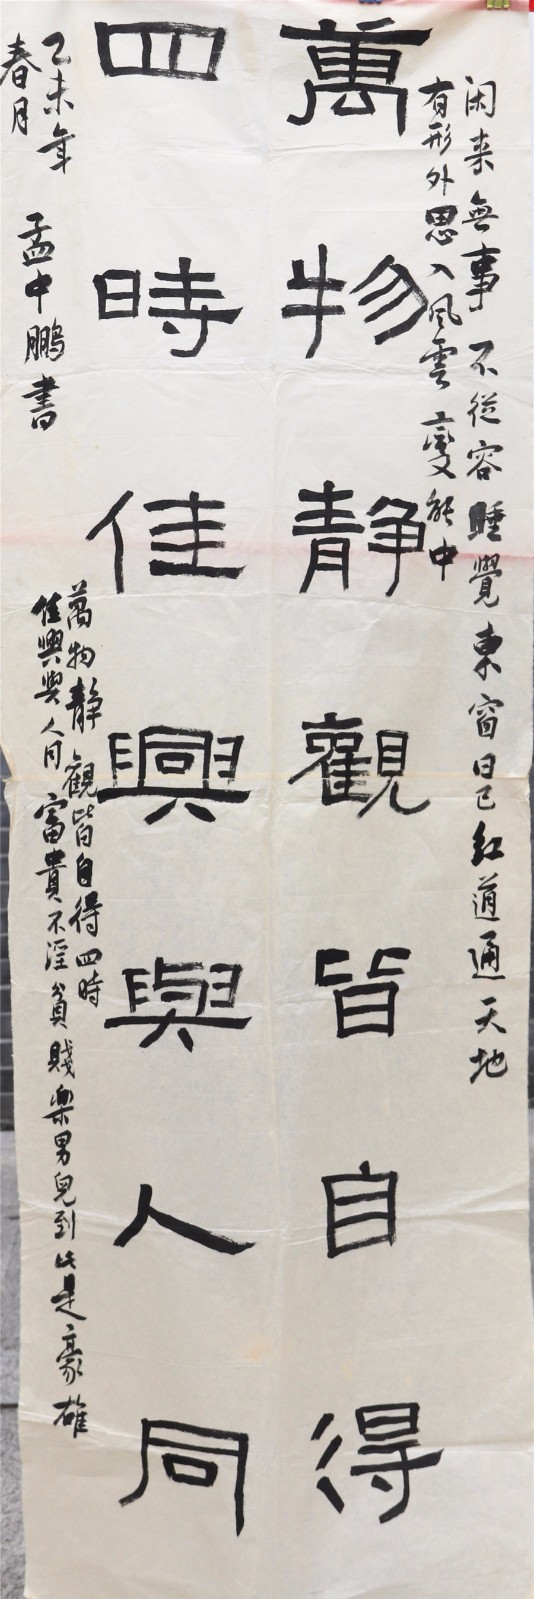 闲来無事不從容睡覺東窗日已紅道通天地
有形外思入风雲變態中
萬物静觀皆自得
四時佳興與人同
萬物静觀皆自得四時
佳興與人同富貴不淫貧賤樂男兒到此是豪雄
乙未年
春月
孟中鵬書